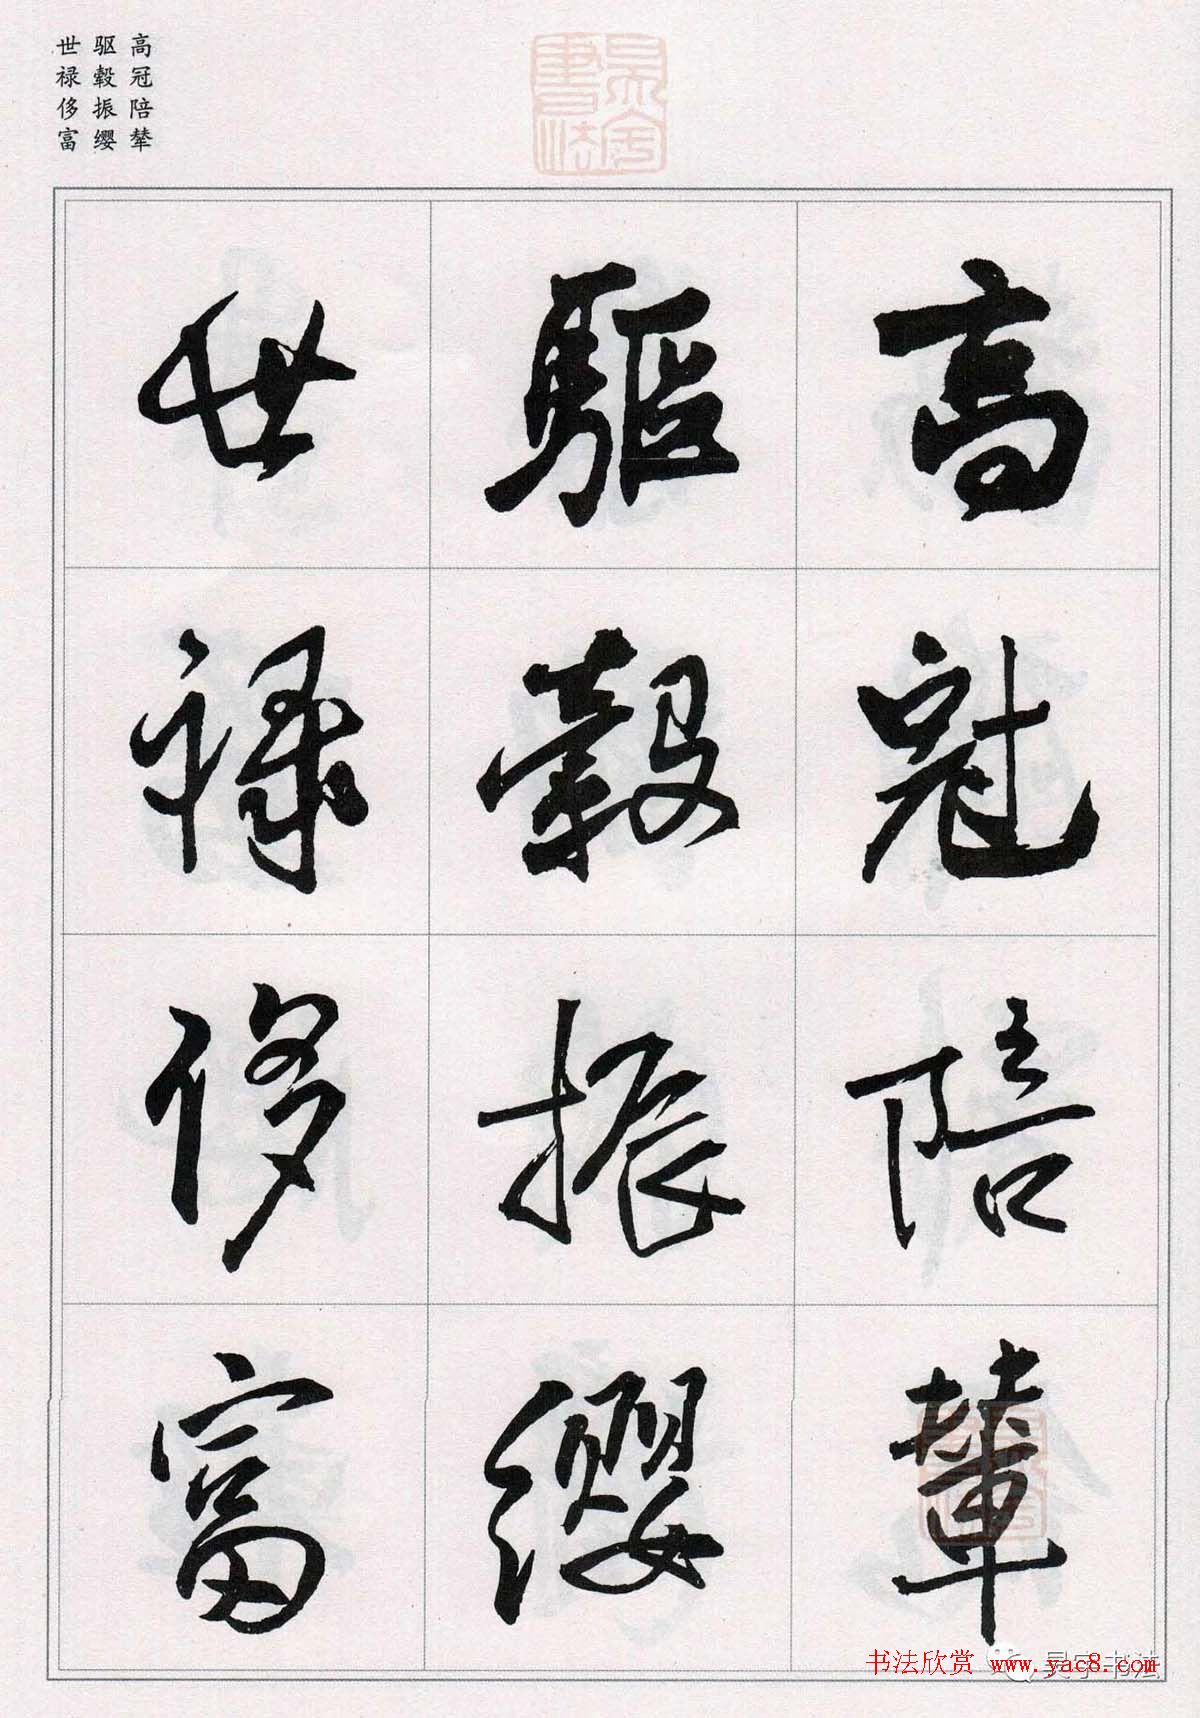 高冠陪辇
驱毂振缨
世禄侈富
高冠陪輦
驅轂振纓
世禄侈富
书法欣赏 www.yac8.com
昊宇书法